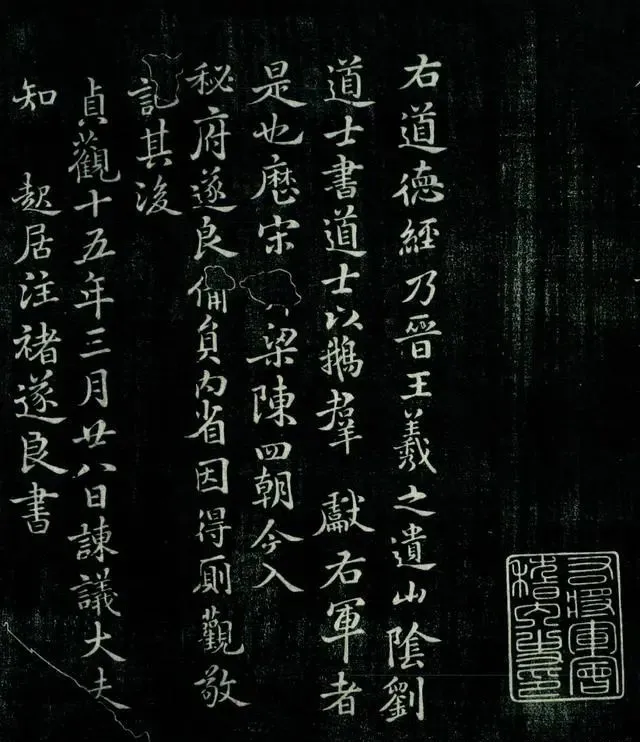 右將軍會
稽內史印
右道德經乃晉王羲之遺山陰劉
道士書道士以鵝羣 獻右軍者
是也歷宋 梁陳四朝今入
秘府遂良俻員內省因得厠觀敬
記其後
貞觀十五年三月廿八日諫議大夫
知 起居注褚遂良書